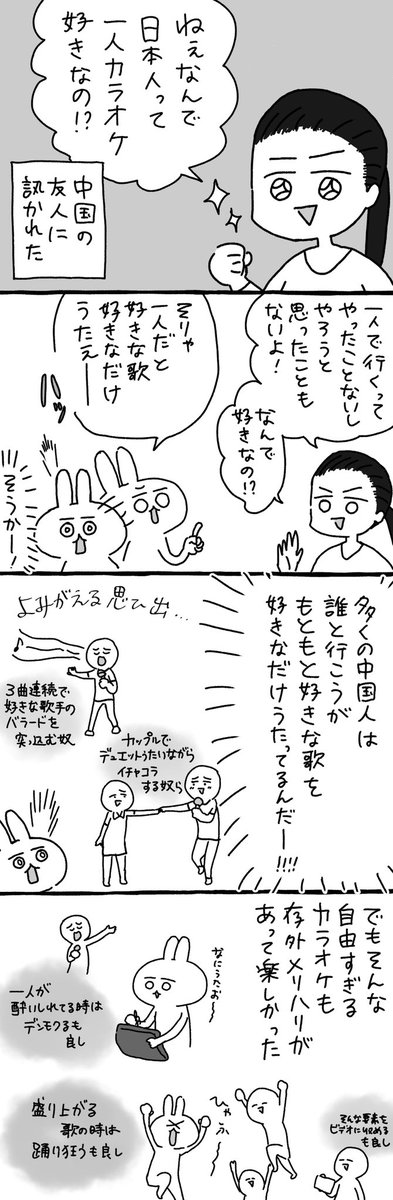 ねぇなんで
日本人って
一人カラオケ
好きなの!?
中国の
友人に
訊かれた
一人で行くって
やったことないし
やろうと
思ったことも
ないよ!
なんで
好きなの!?
そりゃ
一人だと
好きな歌
好きなだけ
うたえ──
ハッ
そうかー!
多くの中国人は
誰と行こうが
もともと好きな歌を
好きなだけうたってるんだー!!!!
よみがえる思ひ出…
3曲連続で
好きな歌手の
バラードを
突っ込む奴
カップルで
デュエットうたいながら
イチャコラ
する奴ら
でもそんな
自由すぎる
カラオケも
存外メリハリが
あって楽しかった
なにうたお〜
一人が
酔いしれてる時は
デンモクるも
良し
盛り上がる
歌の時は
踊り狂うも良し
ひゃふ〜
そんな要素を
ビデオに収める
も良し